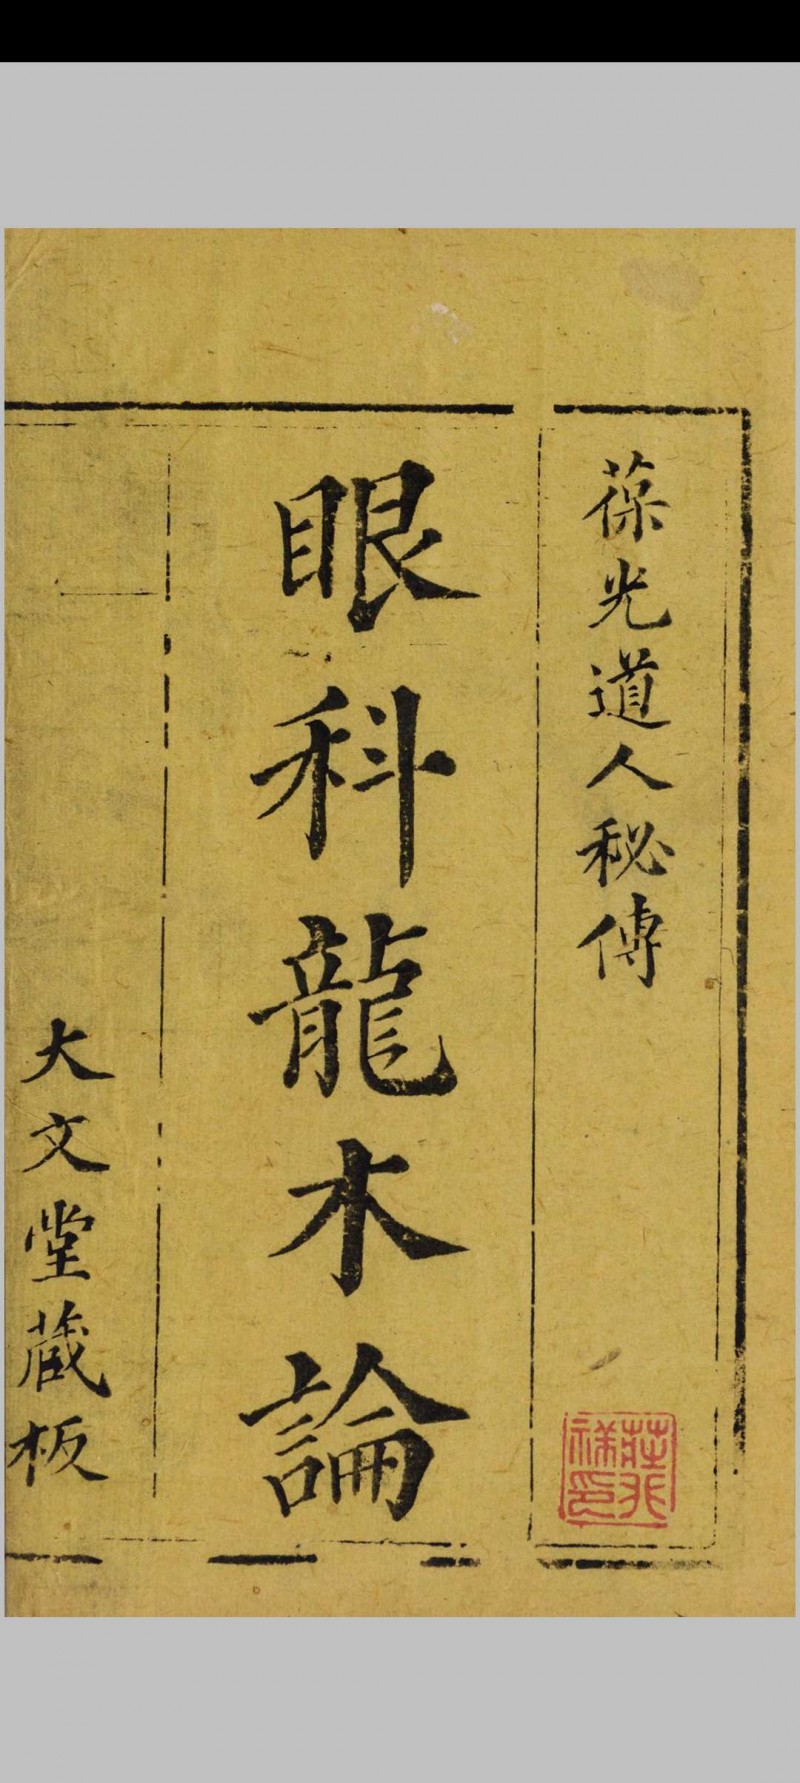 葆光道人秘傳
眼科龍木論
大文堂蔵板